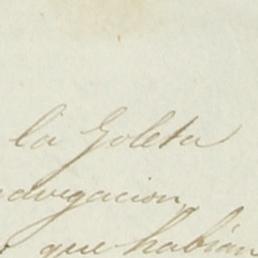 la Goleta
navegacion
que habian